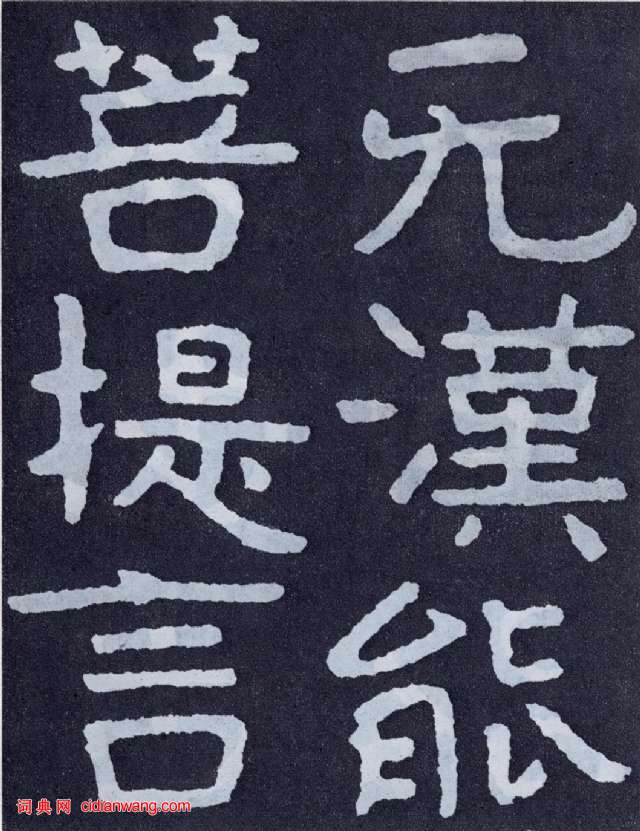 元漢能
菩提言
词典网 cidianwang.com